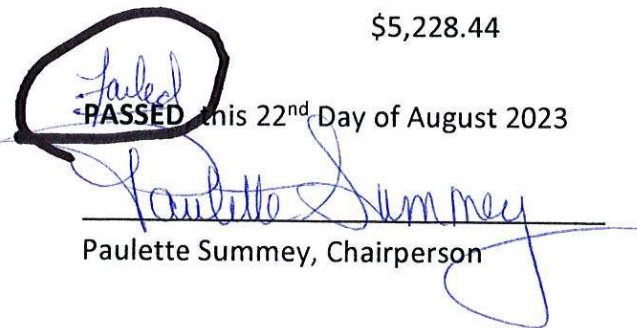 $5,228.44
Failed
PASSED this 22nd Day of August 2023
Paulette Summey
Paulette Summey, Chairperson